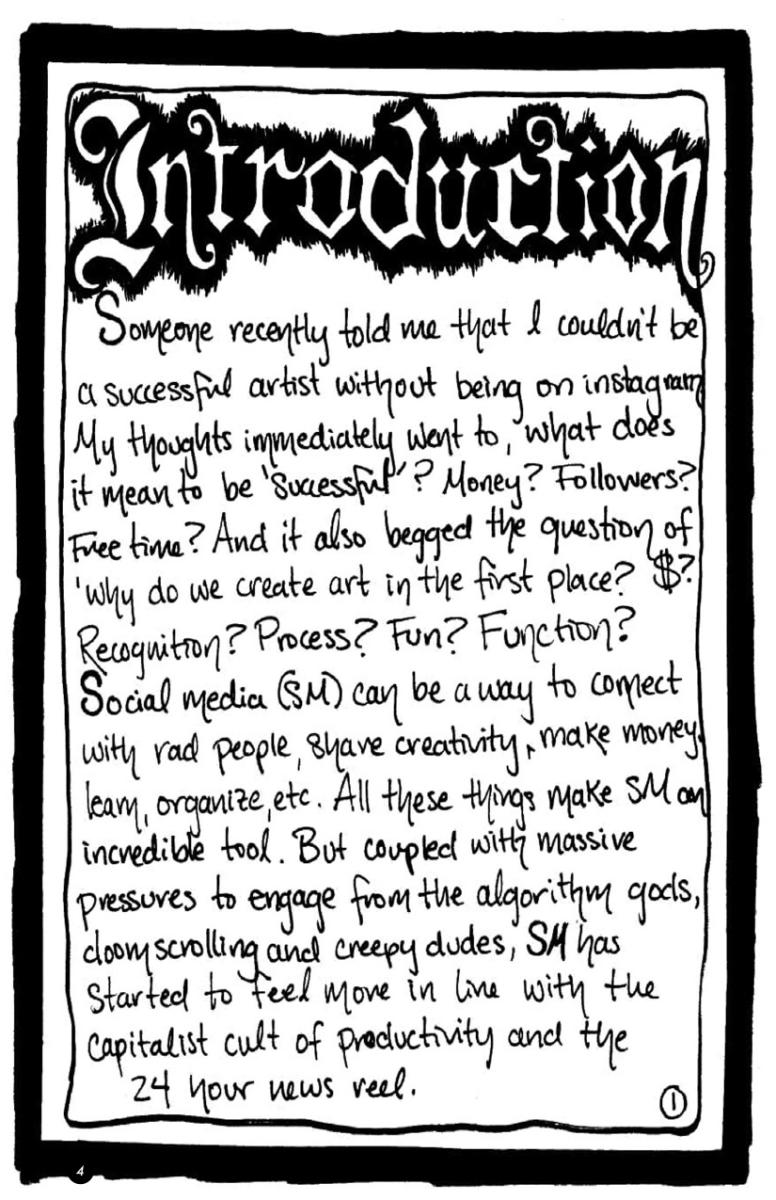 Introduction
Someone recently told me that I couldn't be
a successful artist without being on instagram
My thoughts immediately went to, 'what does
it mean to be 'successful'? Money? Followers?
Free time? And it also begged the question of
'why do we create art in the first place? $?
Recognition? Process? Fun? Function?
Social media (SM) can be a way to connect
with rad people, share creativity, make money,
learn, organize, etc. All these things make SM an
incredible tool. But coupled with massive
pressures to engage from the algorithm gods,
doomscrolling and creepy dudes, SM has
started to feel more in line with the
capitalist cult of productivity and the
24 hour news reel.
1
4